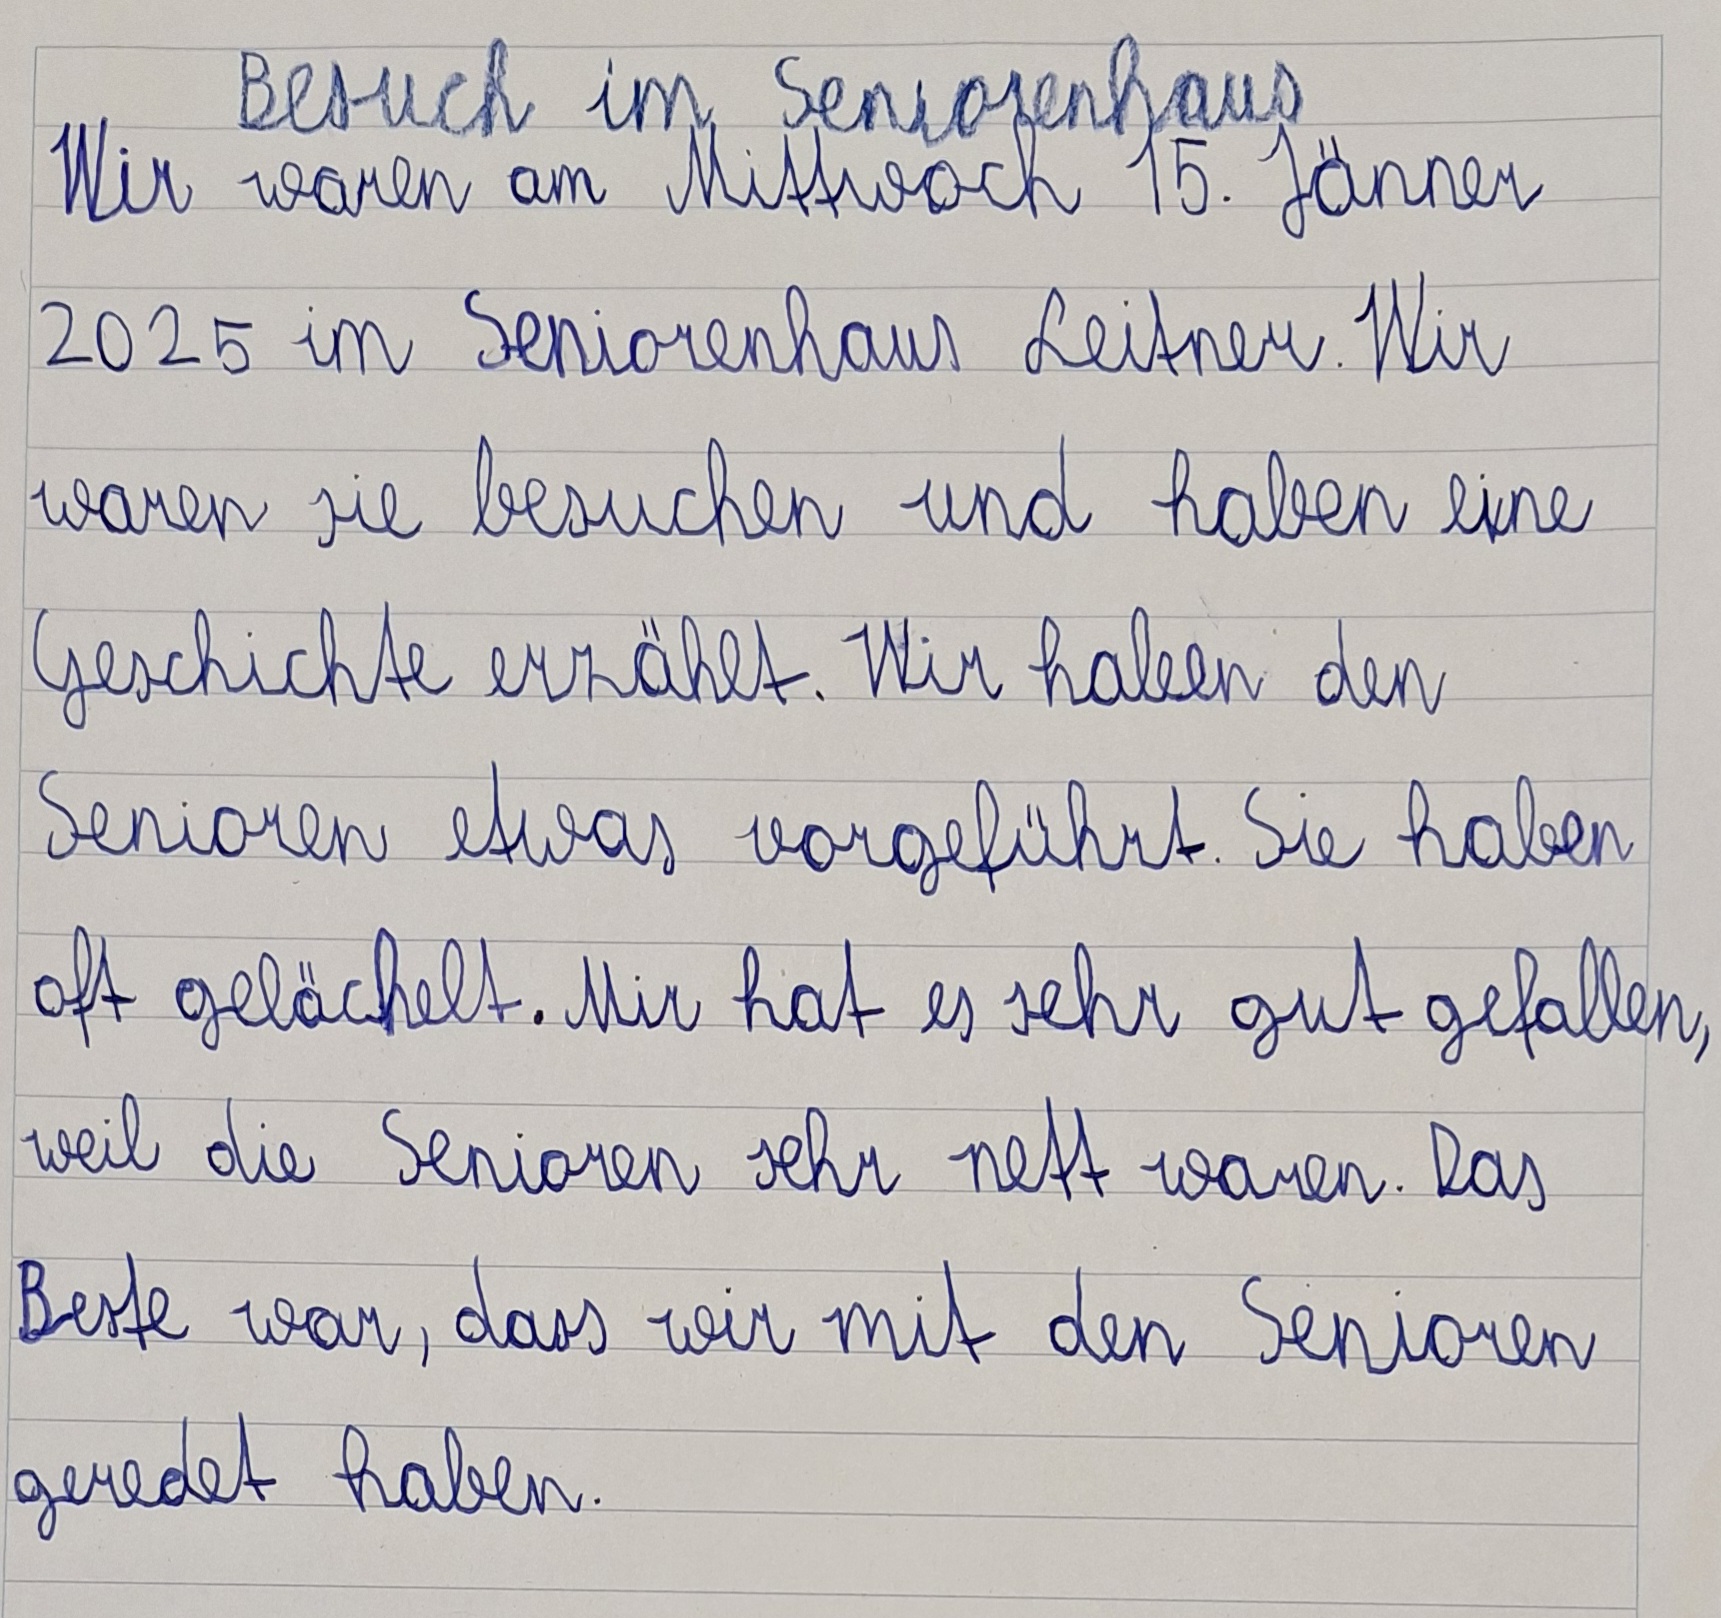 Besuch im Seniorenhaus
Wir waren am Mittwoch 15. Jänner
2025 im Seniorenhaus Leitner. Wir
waren sie besuchen und haben eine
Geschichte erzählt. Wir haben den
Senioren etwas vorgeführt. Sie haben
oft gelächelt. Mir hat es sehr gut gefallen,
weil die Senioren sehr nett waren. Das
Beste war, dass wir mit den Senioren
geredet haben.